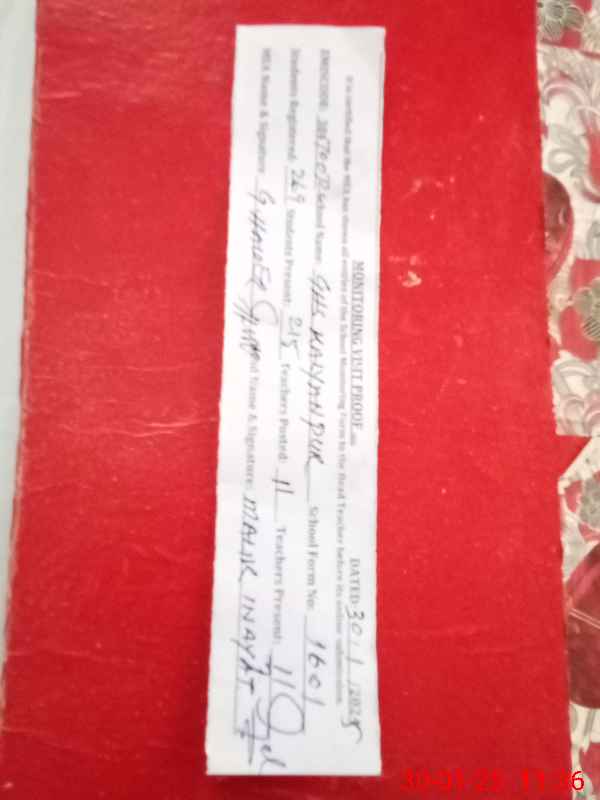 MONITORING VISIT PROOF DATED: 30/1/2025
It is certified that the MEA has shown all entries of the School Monitoring Form to the Head Teacher before its online submission.
EMISCODE: School Name: GHS KALYANPUR School Form No: 1601
Students Registered: 269 Students Present: 215 Teachers Posted: 11 Teachers Present: 11
MEA Name & Signature: Name & Signature: MALIK INAYAT
30-01-25 11:36